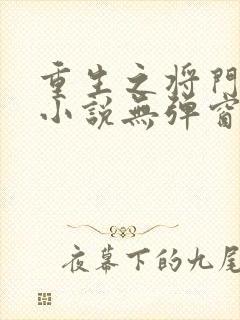 重生之将門
小説無弹窗
夜幕下的九尾